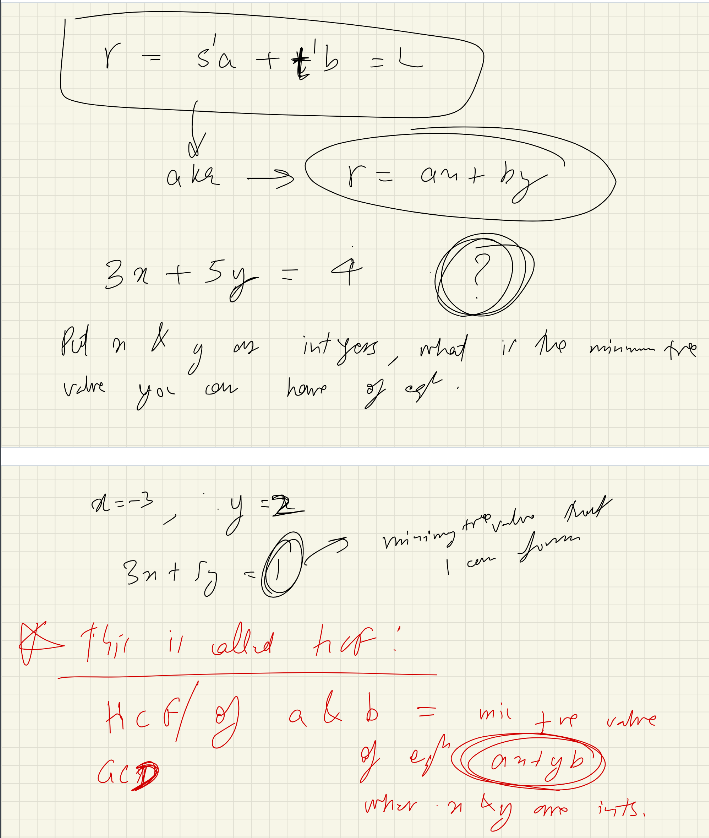 r = s'a + t'b = L
aka → r = ax + by
3x + 5y = 4 ?
Put x & y as integers, what is the minimum +ve
value you can have of eqn.
x = -3, y = 2
3x + 5y = 1 → minimum +ve value that
I can form
This is called HCF:
HCF/ of a & b = min +ve value
GCD of eqn ax+yb
when x & y are ints.